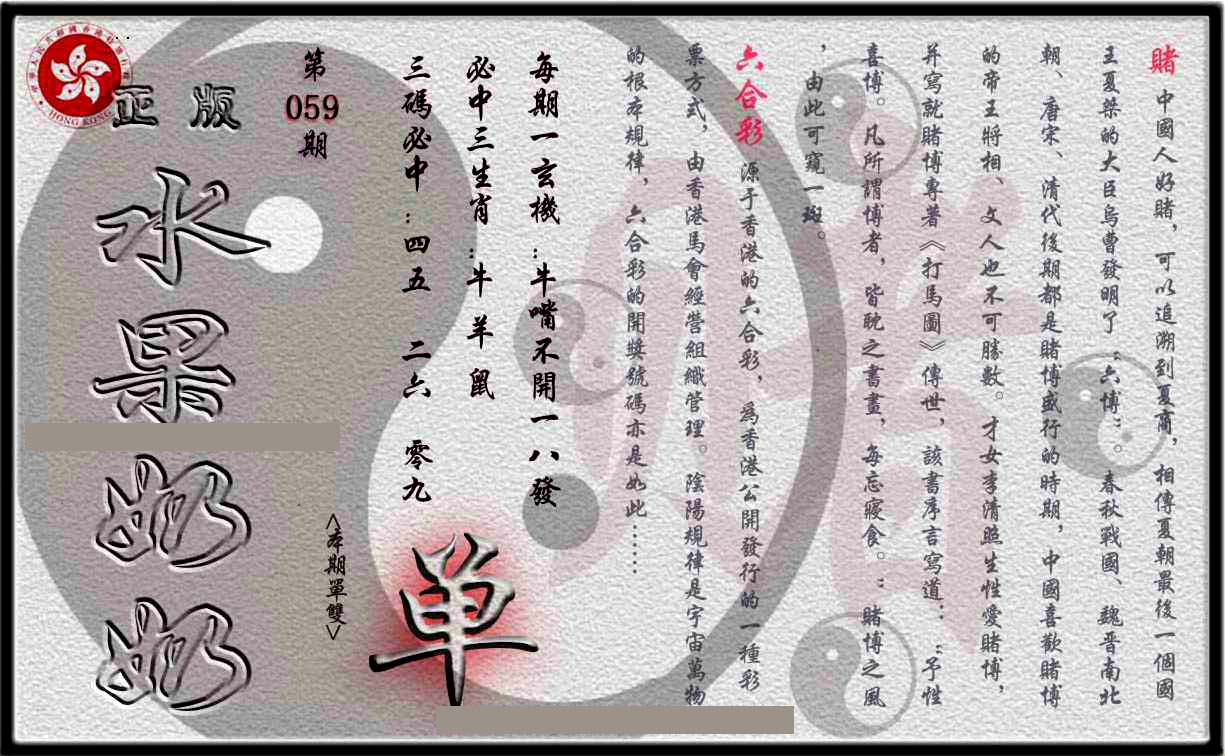 賭 中國人好賭，可以追溯到夏商，相傳夏朝最後一個國
王夏桀的大臣烏曹發明了“六博”　春秋戰國、魏晋南北
朝、唐宋、清代後期都是賭博盛行的時期，中國喜歡賭博
的帝王將相、文人也不可勝數。才女李清照生性愛賭博，
并寫就賭博專著《打馬圖》傳世，該書序言寫道：“予性
喜博。凡所謂博者，皆耽之書畫，每忘寢食。”賭博之風
，由此可窺一斑。
六合彩 源于香港的六合彩，爲香港公開發行的一種彩
票方式，由香港馬會經營組織管理。陰陽規律是宇宙萬物
的根本規律，六合彩的開獎號碼亦是如此……
每期一玄機：牛嘴不開一八發
必中三生肖：牛 羊 鼠
三碼必中：四五 二六 零九
单
<本期單雙>
第
059
期
正版
水果奶奶
HONG KONG